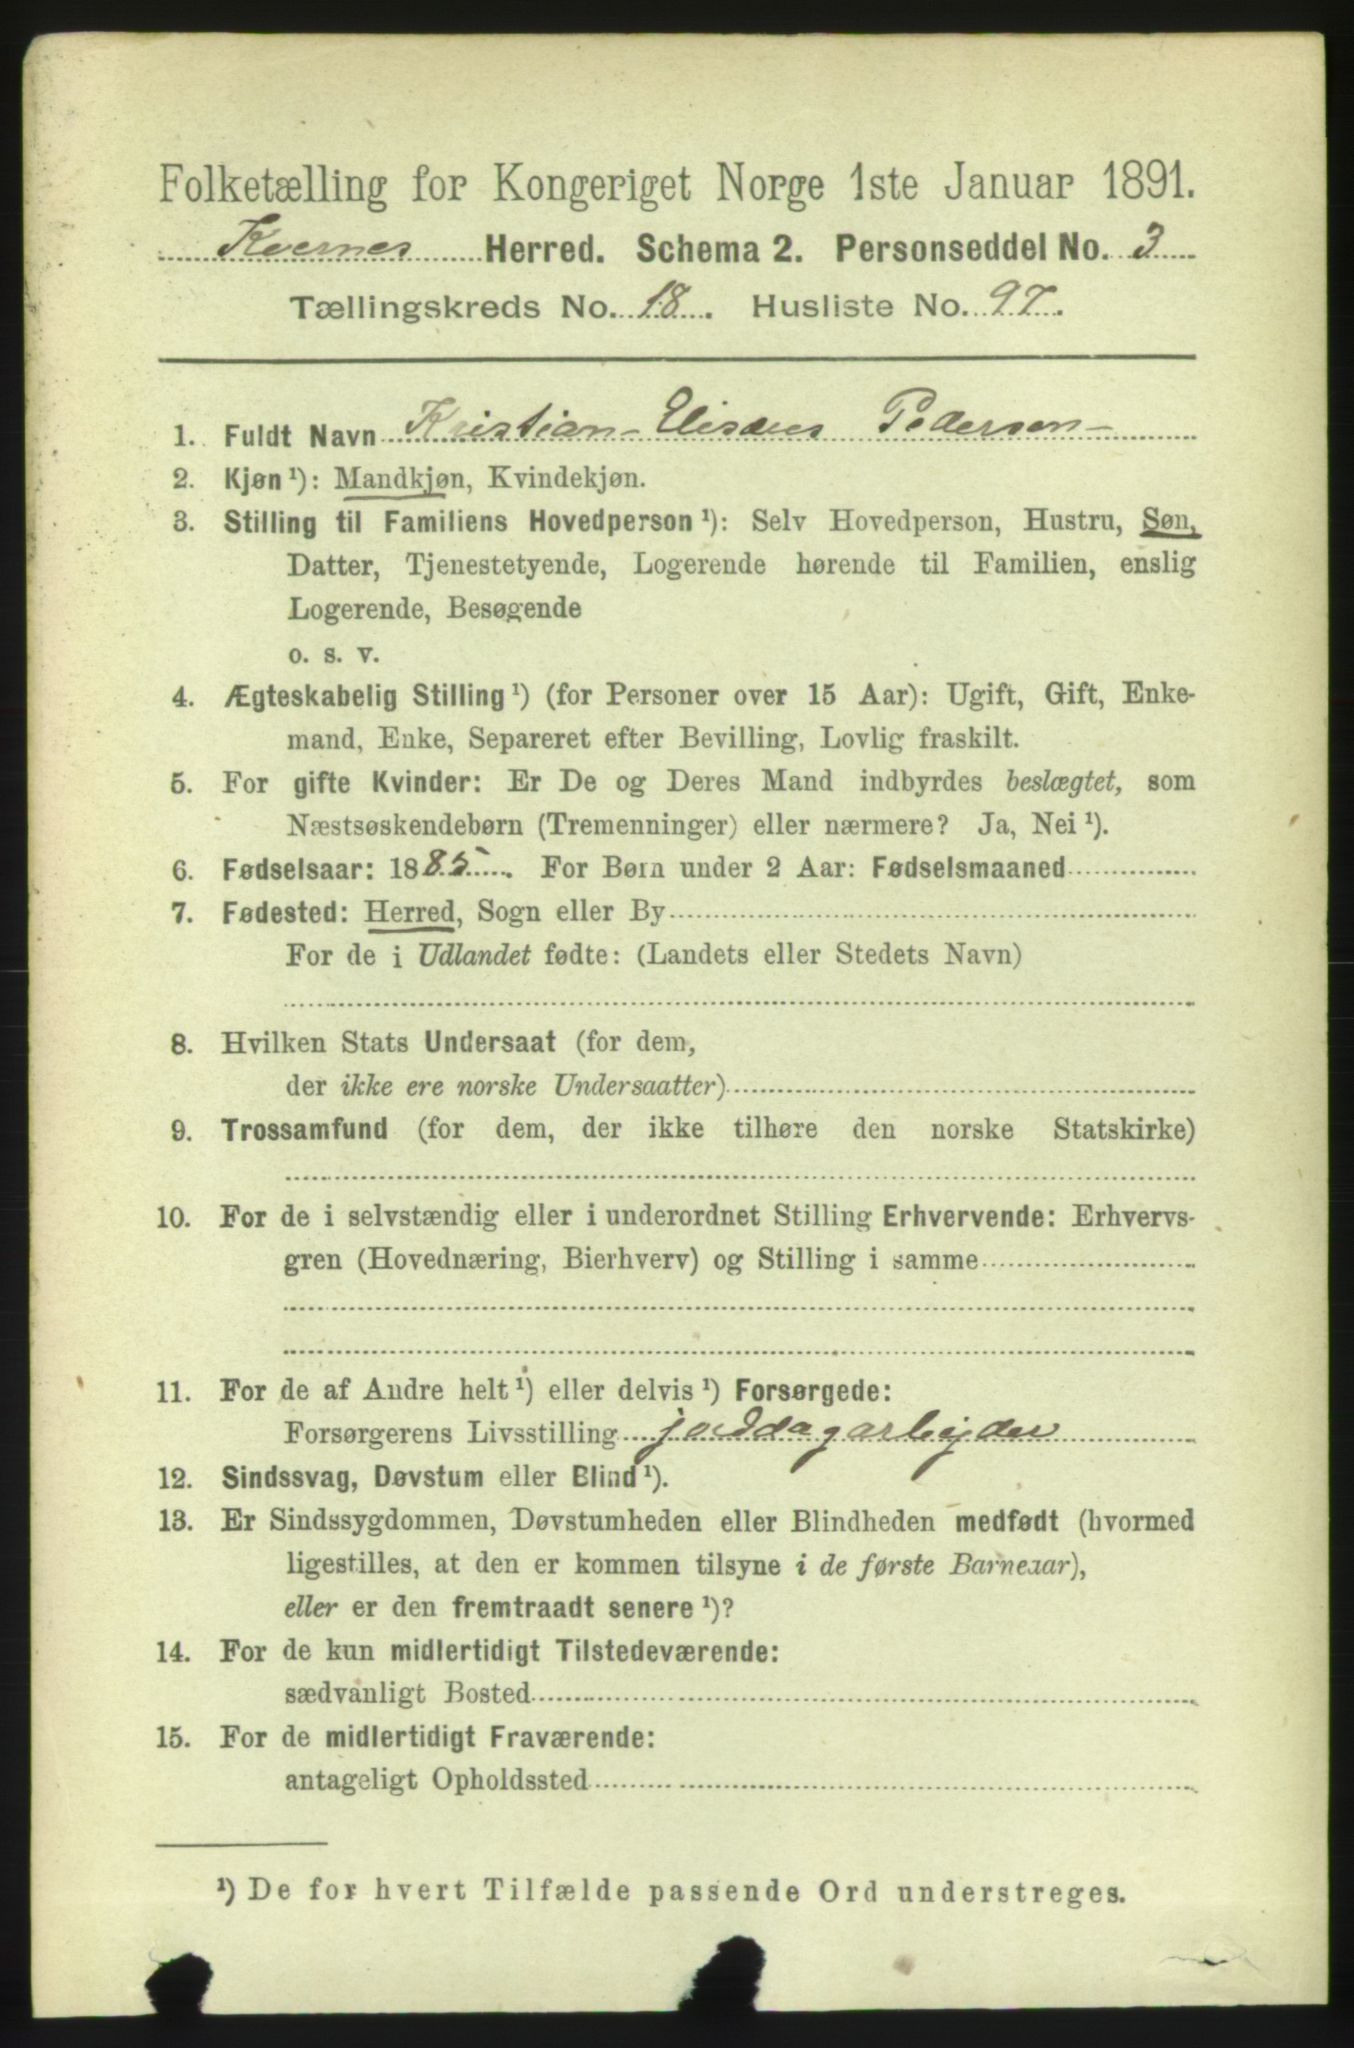 Folketælling for Kongeriget Norge 1ste Januar 1891.
Kvernes Herred. Schema 2. Personseddel No. 3
Tællingskreds No. 18. Husliste No. 97.
1. Fuldt Navn Kristian Elisæus Pedersen
2. Kjøn ¹): Mandkjøn, Kvindekjøn.
3. Stilling til Familiens Hovedperson ¹): Selv Hovedperson, Hustru, Søn,
Datter, Tjenestetyende, Logerende hørende til Familien, enslig
Logerende, Besøgende
o. s. v.
4. Ægteskabelig Stilling ¹) (for Personer over 15 Aar): Ugift, Gift, Enke-
mand, Enke, Separeret efter Bevilling, Lovlig fraskilt.
5. For gifte Kvinder: Er De og Deres Mand indbyrdes beslægtet, som
Næstsøskendebørn (Tremenninger) eller nærmere? Ja, Nei ¹).
6. Fødselsaar: 1885. For Børn under 2 Aar: Fødselsmaaned
7. Fødested: Herred, Sogn eller By
For de i Udlandet fødte: (Landets eller Stedets Navn)
8. Hvilken Stats Undersaat (for dem,
der ikke ere norske Undersaatter)
9. Trossamfund (for dem, der ikke tilhøre den norske Statskirke)
10. For de i selvstændig eller i underordnet Stilling Erhvervende: Erhvervs-
gren (Hovednæring, Bierhverv) og Stilling i samme
11. For de af Andre helt ¹) eller delvis ¹) Forsørgede:
Forsørgerens Livsstilling jorddagarbejder
12. Sindssvag, Døvstum eller Blind ¹).
13. Er Sindssygdommen, Døvstumheden eller Blindheden medfødt (hvormed
ligestilles, at den er kommen tilsyne i de første Barneaar),
eller er den fremtraadt senere ¹)?
14. For de kun midlertidigt Tilstedeværende:
sædvanligt Bosted
15. For de midlertidigt Fraværende:
antageligt Opholdssted
¹) De for hvert Tilfælde passende Ord understreges.